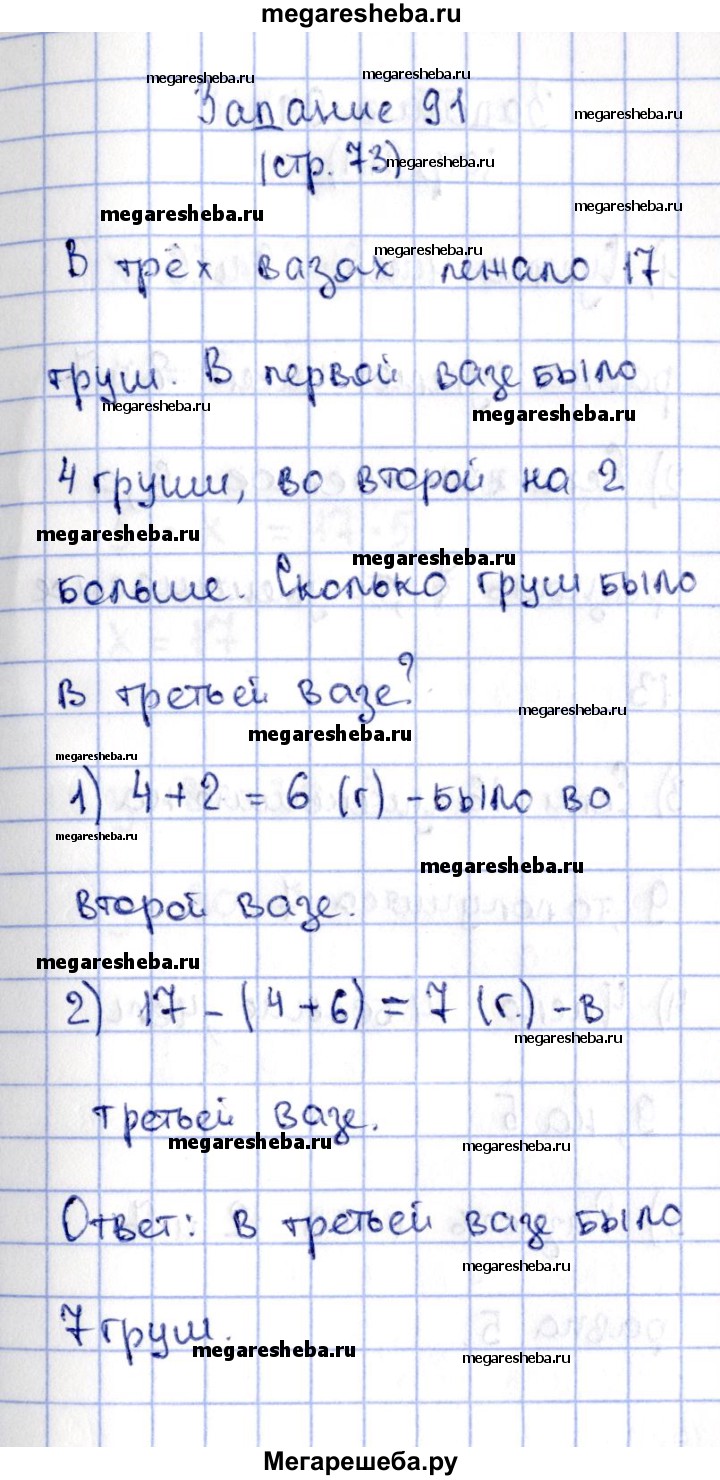 megaresheba.ru
megaresheba.ru megaresheba.ru
Задание 91 megaresheba.ru
(стр. 73) megaresheba.ru
megaresheba.ru megaresheba.ru
megaresheba.ru
В трёх вазах лежало 17
груш. В первой вазе было
megaresheba.ru megaresheba.ru
4 груши, во второй на 2
megaresheba.ru megaresheba.ru
больше. Сколько груш было
в третьей вазе?
megaresheba.ru megaresheba.ru
megaresheba.ru
1) 4 + 2 = 6 (г) - было во
megaresheba.ru megaresheba.ru
второй вазе.
megaresheba.ru
2) 17 - (4 + 6) = 7 (г.) - в
megaresheba.ru
третьей вазе.
megaresheba.ru megaresheba.ru
Ответ: в третьей вазе было
megaresheba.ru
7 груш.
megaresheba.ru megaresheba.ru
Мегарешеба.ру